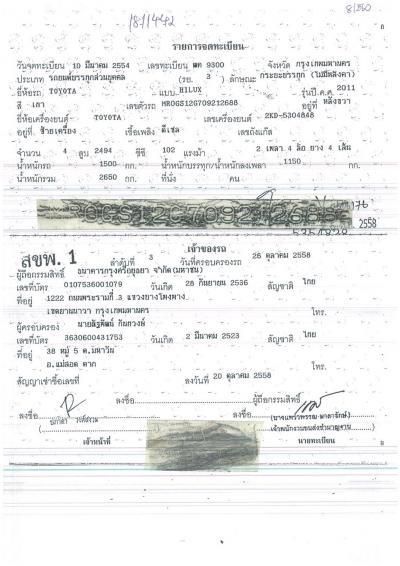 8/560
รายการจดทะเบียน
วันจดทะเบียน 10 มีนาคม 2554 เลขทะเบียน 9300 จังหวัด กรุงเทพมหานคร
ประเภท รถยนต์บรรทุกส่วนบุคคล (รย. 3 ) ลักษณะ กระบะบรรทุก (ไม่มีหลังคา)
ยี่ห้อรถ TOYOTA แบบ HILUX รุ่นปี ค.ศ. 2011
สี เทา เลขตัวรถ MR0GS12G709212688 อยู่ที่ หลังขวา
ยี่ห้อเครื่องยนต์ TOYOTA เลขเครื่องยนต์ 2KD-5304848
อยู่ที่ ซ้ายเครื่อง เชื้อเพลิง ดีเซล เลขถังแก๊ส
จำนวน 4 สูบ 2494 ซีซี 102 แรงม้า 2 เพลา 4 ล้อ ยาง 4 เส้น
น้ำหนักรถ 1500 กก. น้ำหนักบรรทุก/น้ำหนักลงเพลา 1150 กก.
น้ำหนักรวม 2650 กก. ที่นั่ง คน
2558
สขพ. 1
เจ้าของรถ
ลำดับที่ 3 วันที่ครอบครองรถ 26 ตุลาคม 2558
ผู้ถือกรรมสิทธิ์ ธนาคารกรุงศรีอยุธยา จำกัด(มหาชน)
เลขที่บัตร 0107536001079 วันเกิด 28 กันยายน 2536 สัญชาติ ไทย
ที่อยู่ 1222 ถนนพระรามที่ 3 แขวงบางโพงพาง
เขตยานนาวา กรุงเทพมหานคร โทร.
ผู้ครอบครอง
เลขที่บัตร 3630600431753 วันเกิด 2 มีนาคม 2523 สัญชาติ ไทย
ที่อยู่ 38 หมู่ 5 ต.มหาวัน
อ.แม่สอด ตาก โทร.
สัญญาเช่าซื้อเลขที่ ลงวันที่ 20 ตุลาคม 2558
ลงชื่อ ผู้ถือกรรมสิทธิ์
ลงชื่อ ลงชื่อ
เจ้าพนักงานขนส่งชำนาญงาน
เจ้าหน้าที่ นายทะเบียน